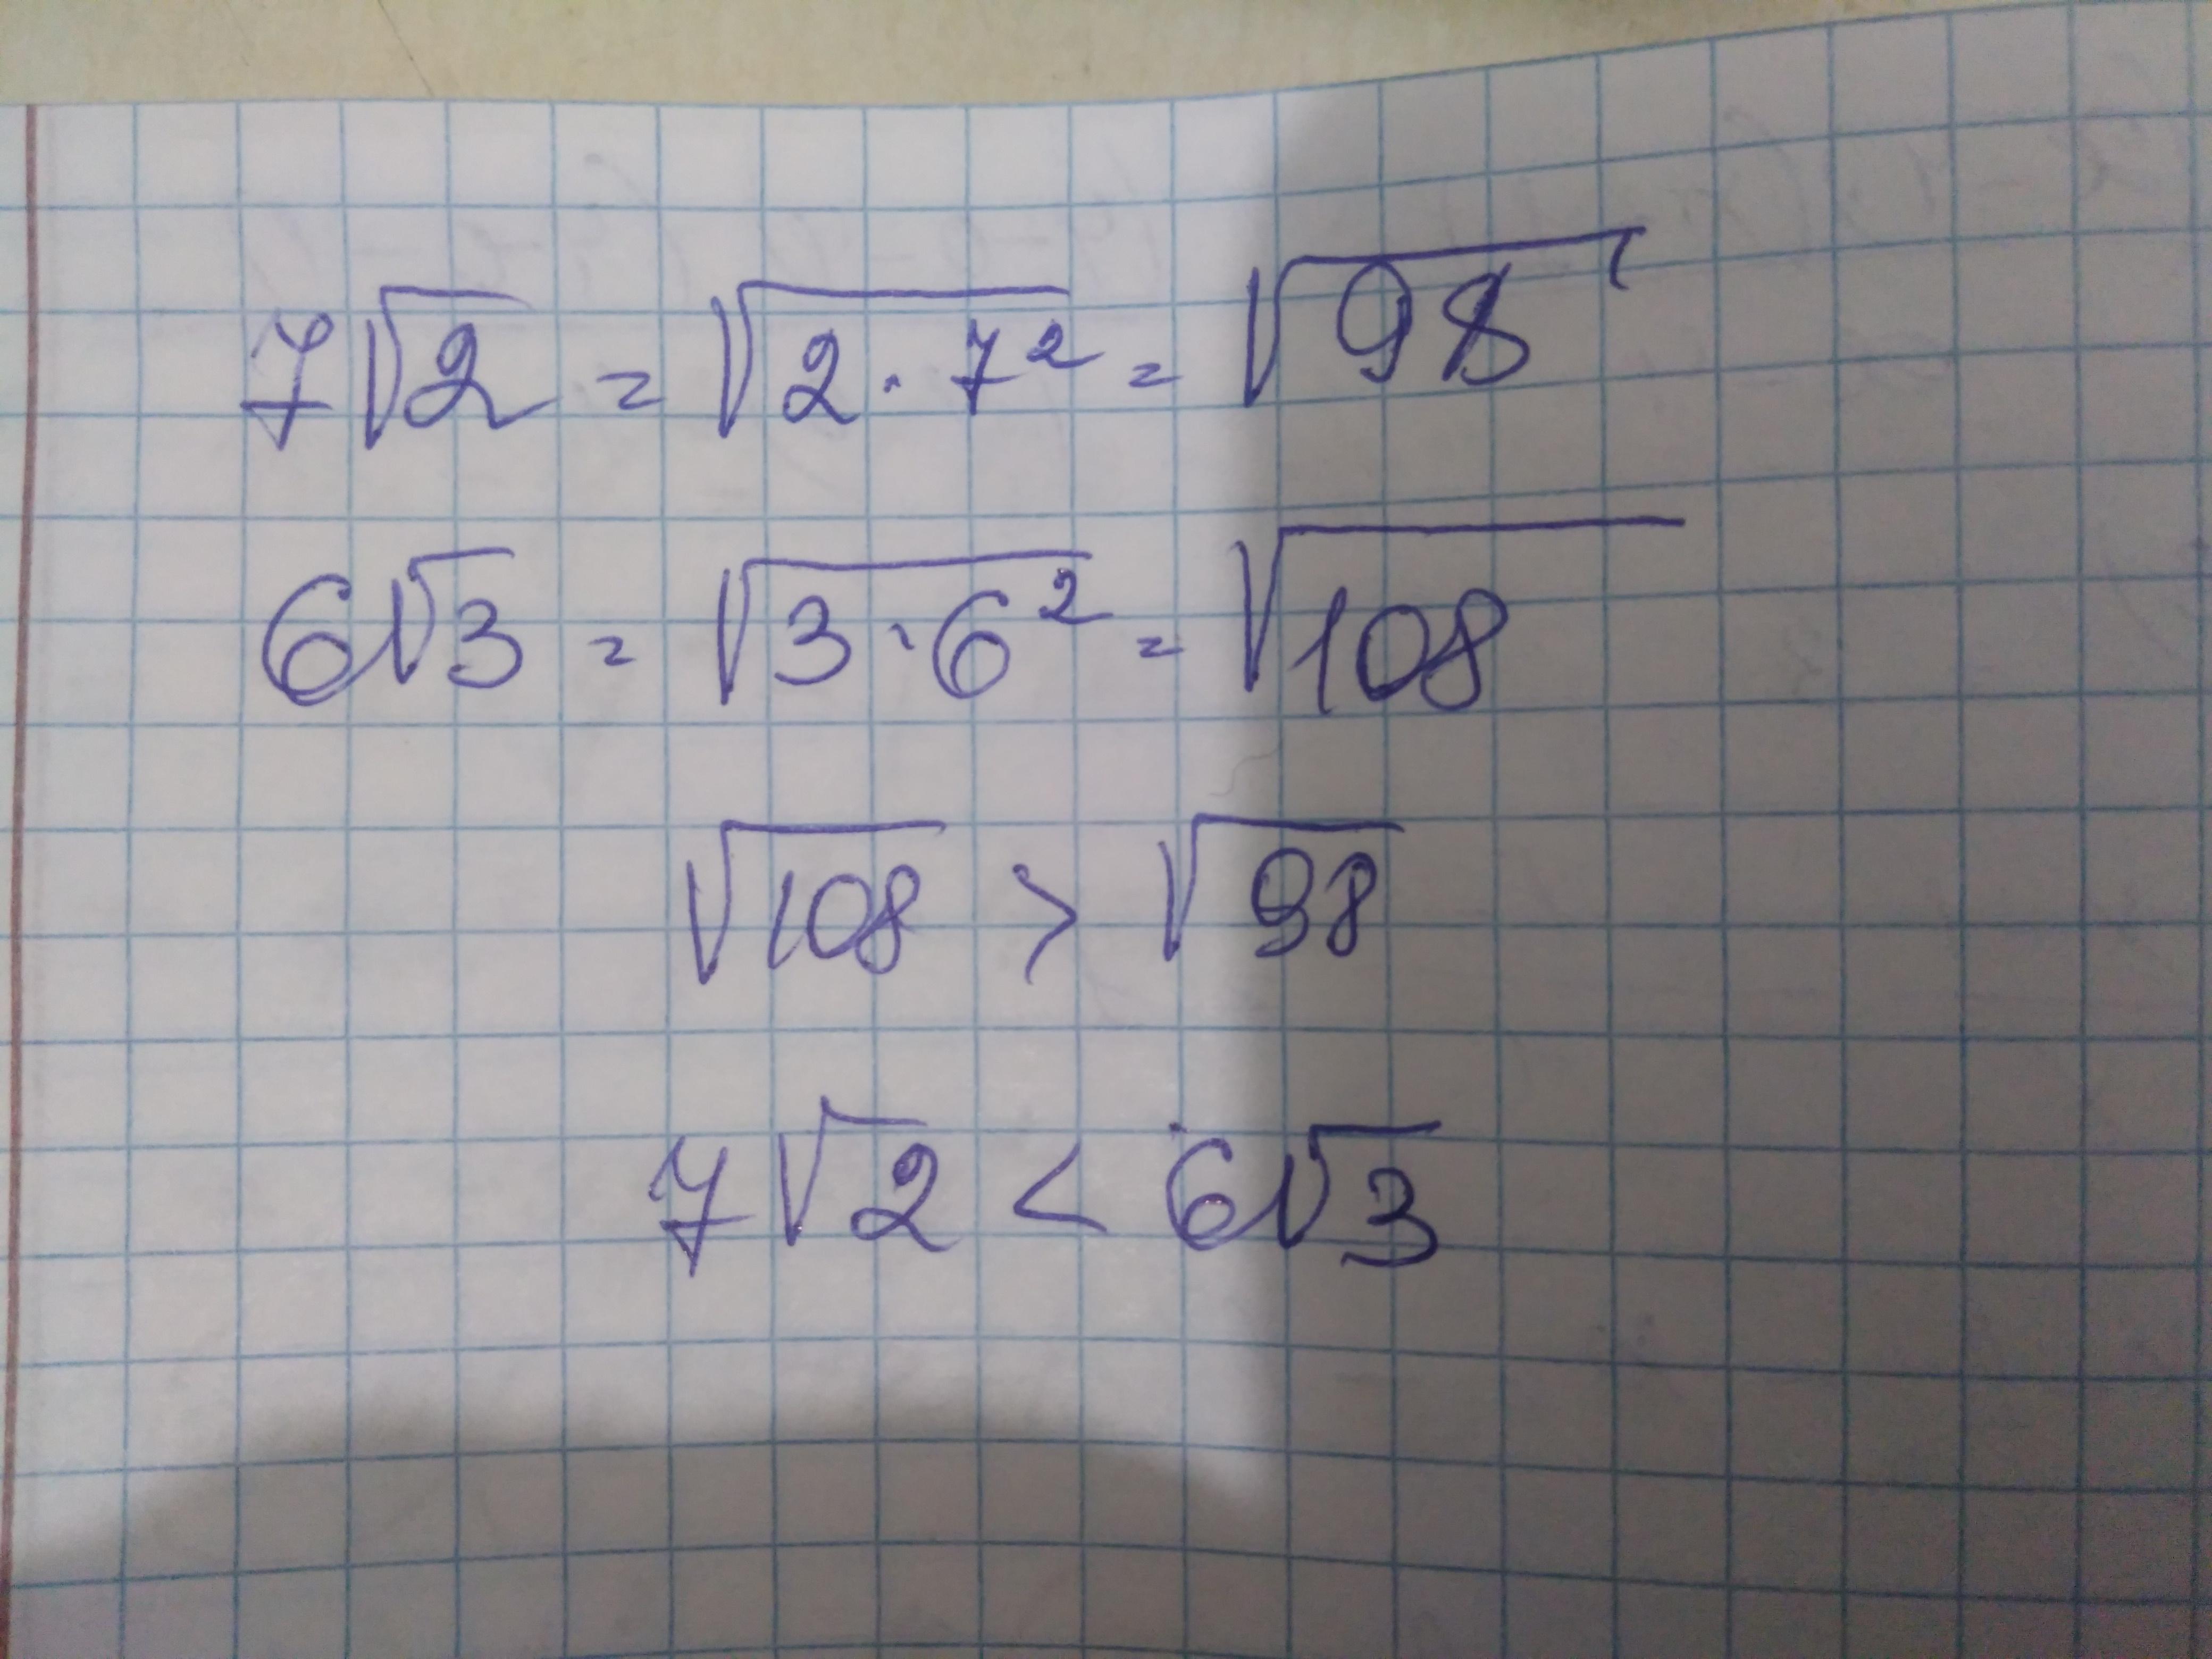 7√2 = √2·7² = √98
6√3 = √3·6² = √108
√108 > √98
7√2 < 6√3